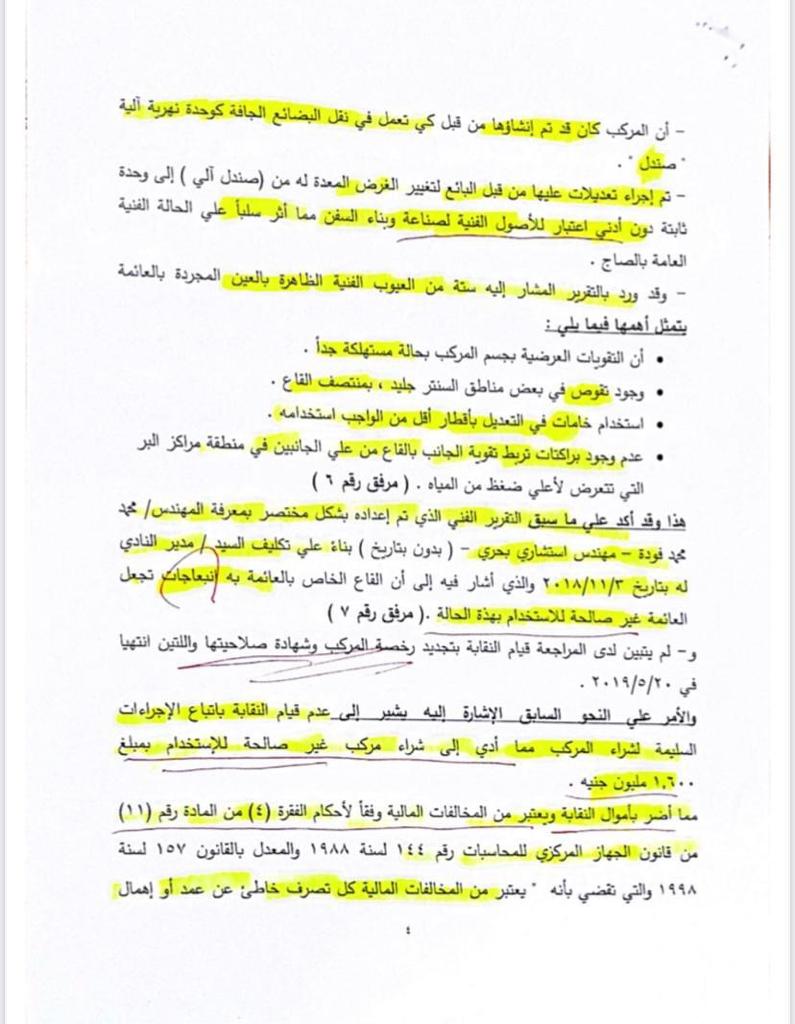 - أن المركب كان قد تم إنشاؤها من قبل كي تعمل في نقل البضائع الجافة كوحدة نهرية آلية
" صندل " .
- تم إجراء تعديلات عليها من قبل البائع لتغيير الغرض المعدة له من (صندل آلي ) إلى وحدة
ثابتة دون أدني اعتبار للأصول الفنية لصناعة وبناء السفن مما أثر سلباً علي الحالة الفنية
العامة بالصاج .
- وقد ورد بالتقرير المشار إليه ستة من العيوب الفنية الظاهرة بالعين المجردة بالعائمة
يتمثل أهمها فيما يلي :
• أن التقويات العرضية بجسم المركب بحالة مستهلكة جداً .
• وجود تقوص في بعض مناطق السنتر جليد ، بمنتصف القاع .
• استخدام خامات في التعديل بأقطار أقل من الواجب استخدامه .
• عدم وجود براكتات تربط تقوية الجانب بالقاع من علي الجانبين في منطقة مراكز البر
التي تتعرض لأعلي ضغظ من المياه . ( مرفق رقم ٦ )
هذا وقد أكد علي ما سبق التقرير الفني الذي تم إعداده بشكل مختصر بمعرفة المهندس/ محمد
محمد فودة - مهندس استشاري بحري - ( بدون بتاريخ ) بناءً علي تكليف السيد / مدير النادي
له بتاريخ ٢٠١٨/١١/٣ والذي أشار فيه إلى أن القاع الخاص بالعائمة به إنبعاجات تجعل
العائمة غير صالحة للاستخدام بهذة الحالة .( مرفق رقم ٧ )
و- لم يتبين لدى المراجعة قيام النقابة بتجديد رخصة المركب وشهادة صلاحيتها واللتين انتهيا
في ٢٠١٩/٥/٢٠ .
والأمر علي النحو السابق الإشارة إليه يشير إلى عدم قيام النقابة باتباع الإجراءات
السليمة لشراء المركب مما أدي إلى شراء مركب غير صالحة للإستخدام بمبلغ
١,٦٠٠ مليون جنيه .
مما أضر بأموال النقابة ويعتبر من المخالفات المالية وفقاً لأحكام الفقرة (٤) من المادة رقم (١١)
من قانون الجهاز المركزي للمحاسبات رقم ١٤٤ لسنة ١٩٨٨ والمعدل بالقانون ١٥٧ لسنة
١٩٩٨ والتي تقضي بأنه " يعتبر من المخالفات المالية كل تصرف خاطئ عن عمد أو إهمال
٤